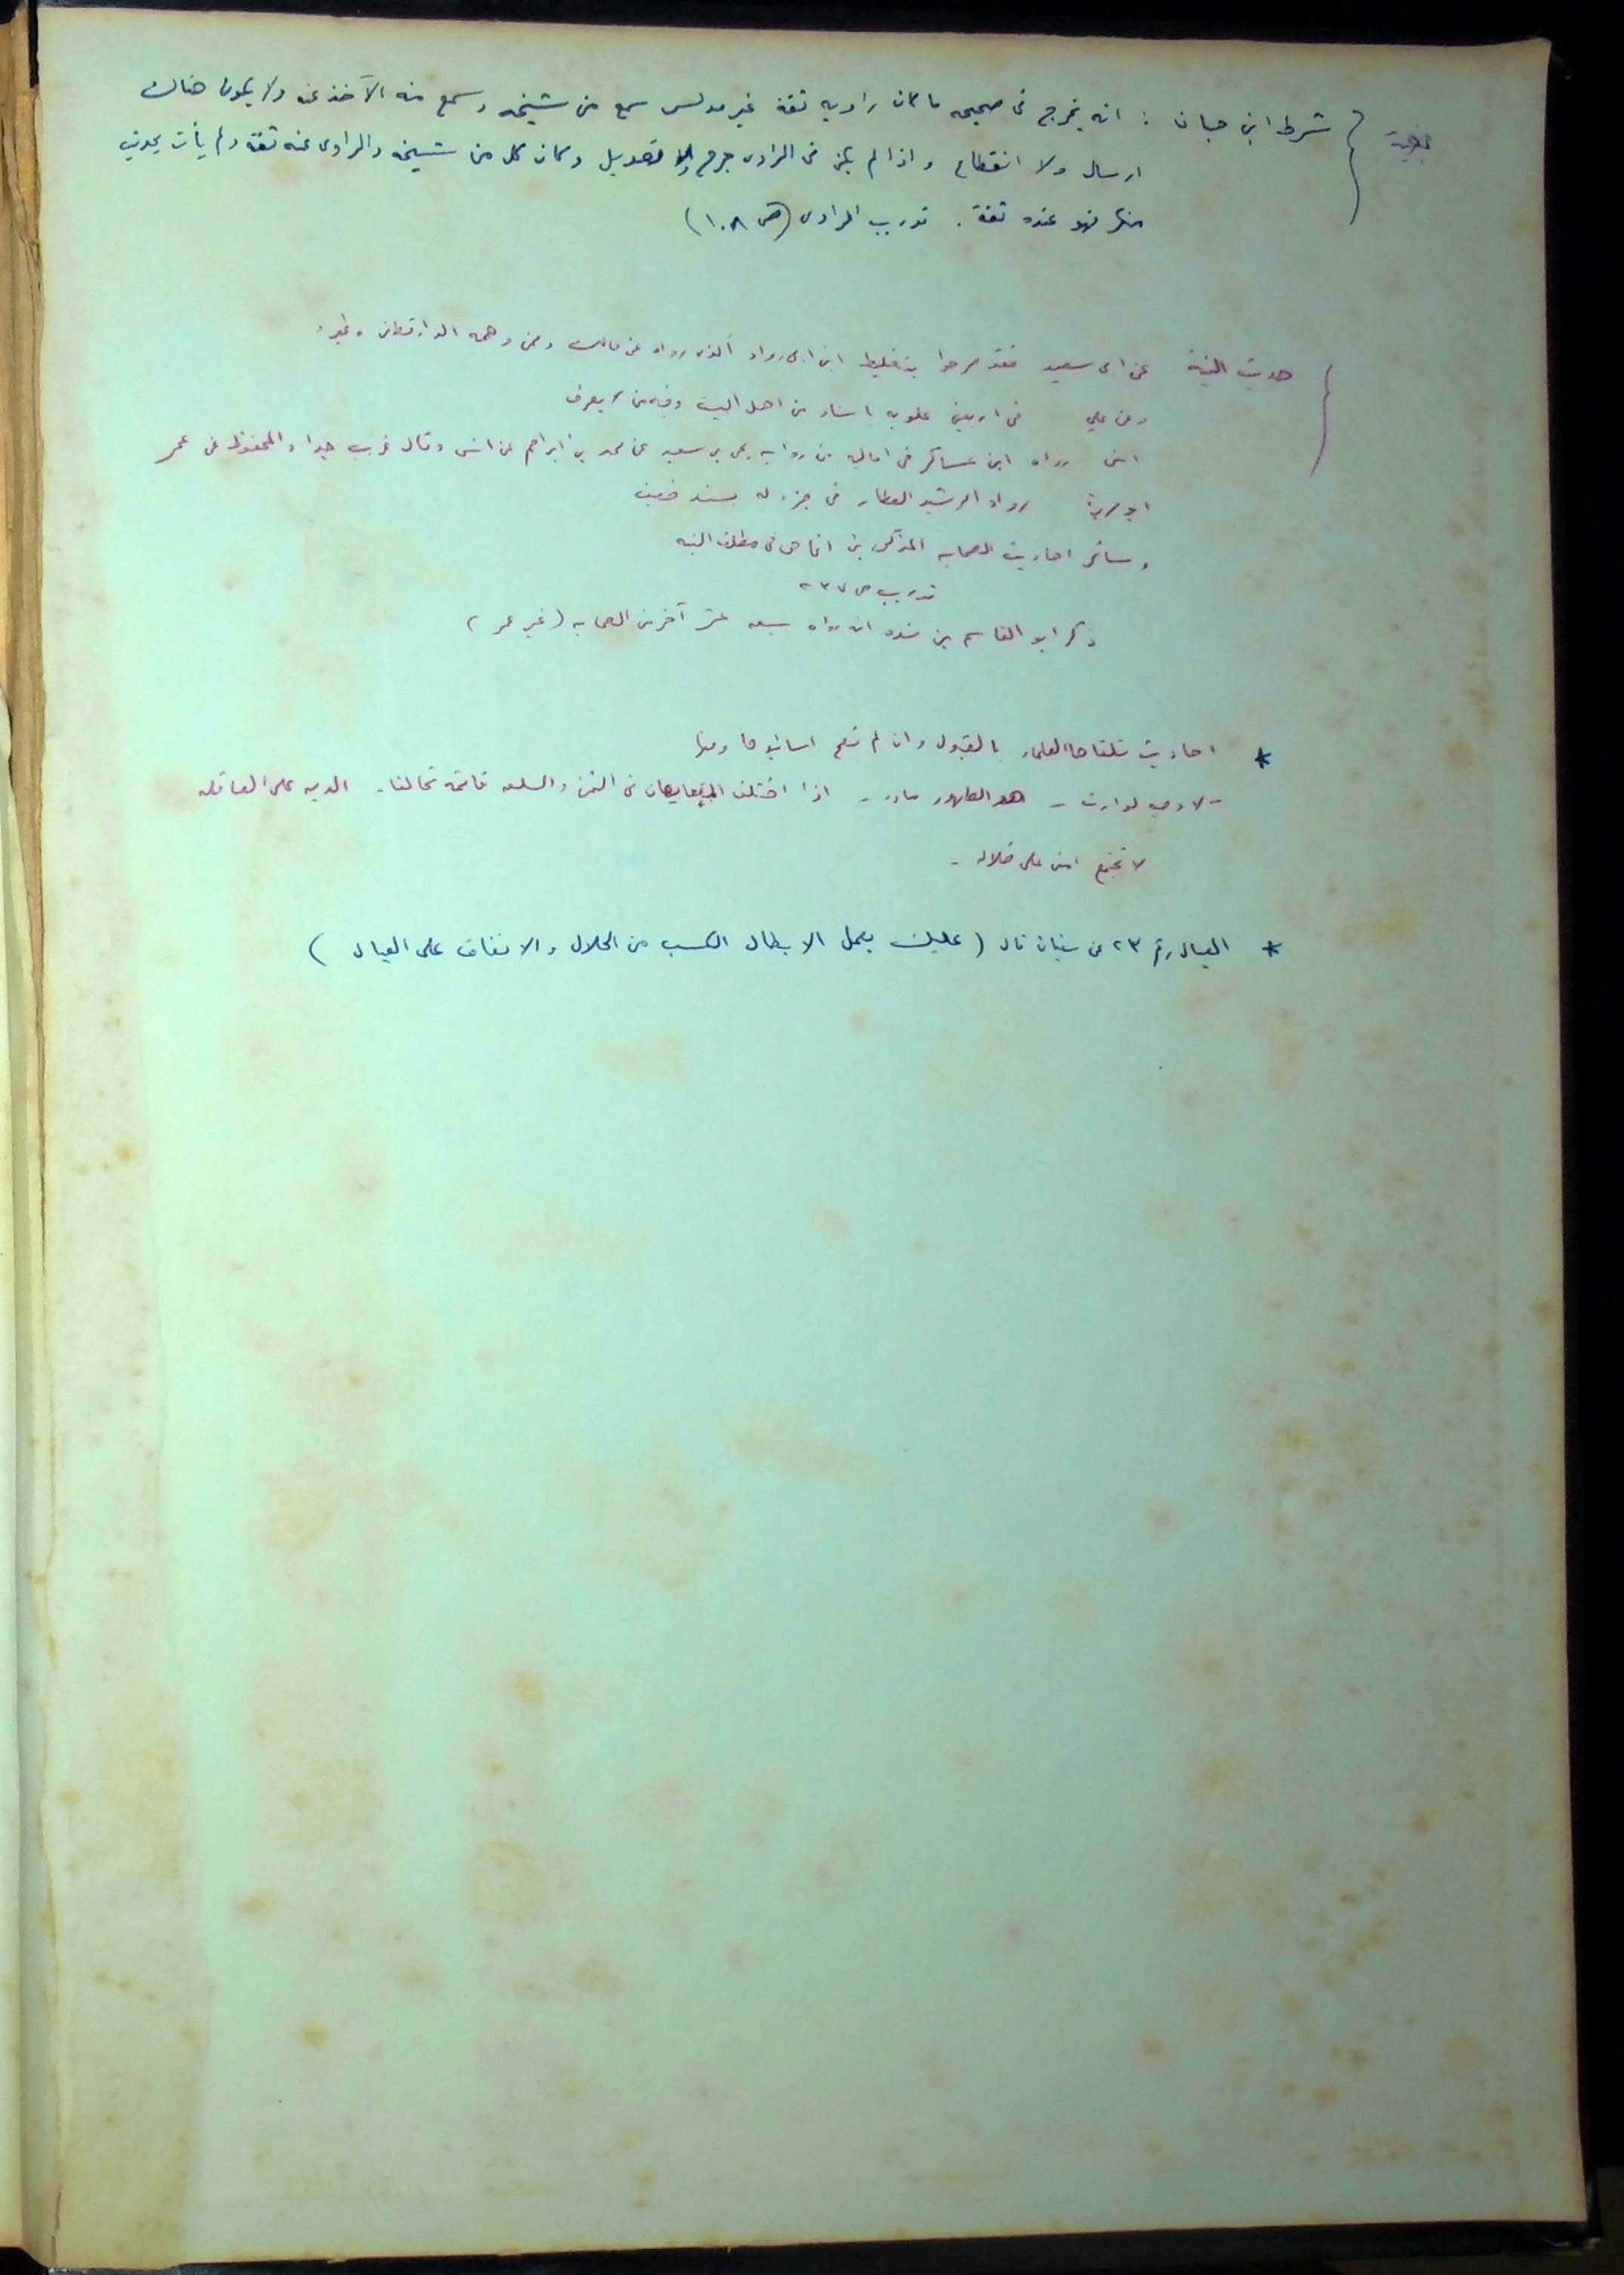 شرط ابن حبان : انه يخرج فى صحيحه ما كان راويه ثقة غير مدلس سمع من شيخه وسمع منه الآخذ عنه ولا يكون هناك
ارسال ولا انقطاع واذا لم يكن فى الراوى جرح ولا تعديل وكان كل من شيخه والراوى عنه ثقة ولم يأت بحديث
منكر فهو عنده ثقة . تدريب الراوى (ص ١٠٨)
حديث النية عن ابى سعيد فقد صرحوا بتغليط ابن ابى رواد الذى رواه عن مالك وممن وهمه الدارقطنى وغيره
وعن على فى اربعين علويه باسناد من اهل البيت وفيه من لا يعرف
انس رواه ابن عساكر فى اماليه من روايه يحى بن سعيد عن محمد بن ابراهيم عن انس وقال غريب جدا والمحفوظ عن عمر
ابو هريرة رواه الرشيد العطار فى جزء له بسند ضعيف
وسائر احاديث الصحابه المذكورين انما هى فى مطلق النيه
تدريب ص ٢٣٧
ذكر ابو القاسم بن منده ان رواه سبعه عشر آخر من الصحابه (غير عمر)
* احاديث تلقاها العلماء بالقبول وان لم تصح اسانيدها ومنها
- لا وصيه لوارث - هو الطهور ماؤه - اذا اختلف المتبايعان فى الثمن والسلعه قائمة تحالفا - الديه على العاقله
لا تجتمع امتى على ضلاله -
* العيال رقم ٢٣ عن سفيان قال ( عليك بعمل الابطال الكسب من الحلال والانفاق على العيال )